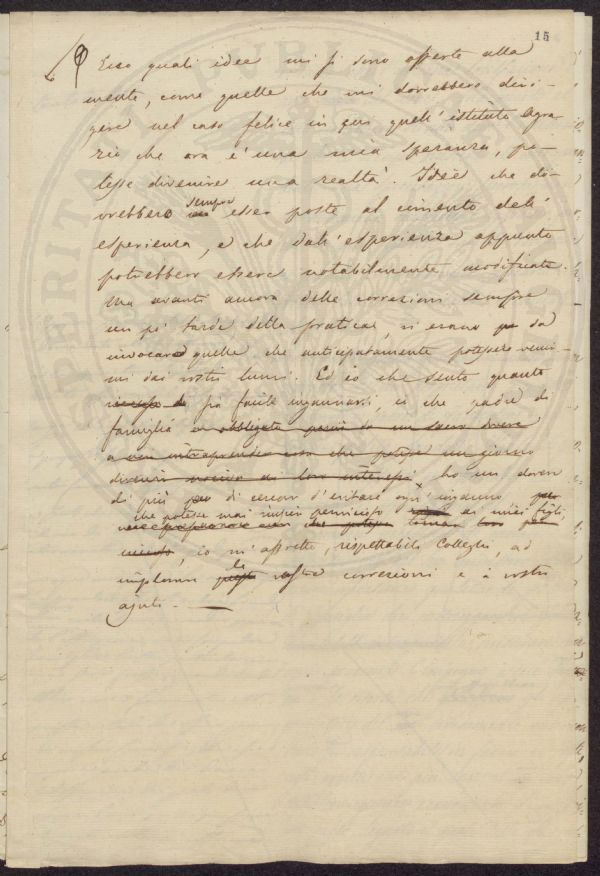 15
Ecco quali idee mi si sono offerte alla
mente, come quelle che mi dovrebbero diri-
gere nel caso felice in cui quell' istituto Agra-
rio che ora è una mia speranza, po-
tesse divenire una realtà. Idee che do-
vrebbero sempre esser poste al cimento dell'
esperienza, e che dall' esperienza appunto
potrebbero essere notabilmente modificate.
Ma avanti ancora delle correzioni sempre
un po' tarde della pratica, vi erano da
invocare quelle che anticipatamente potessero venir-
mi dai vostri lumi. Ed io che sento quanto
sia facile ingannarsi, io che padre di
famiglia obbligato a non dovere
a non intraprendere cosa che potesse un giorno
divenir nociva ai loro interessi, ho un dovere
di più di cercar d'evitare ogni inganno
che potesse mai riuscir pernicioso ai miei figli,
io m' affretto, rispettabili Colleghi, ad
implorar le vostre correzioni e i vostri
ajuti. —